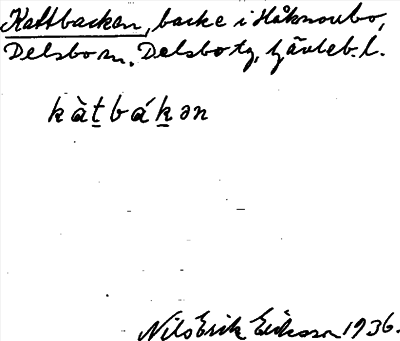 Kattbacken, backe i Håknorbo,
Delsbo sn, Delsbo tg, Gävleb. l.
kàt̲bák̲ən
Nils Erik Eriksson 1936.